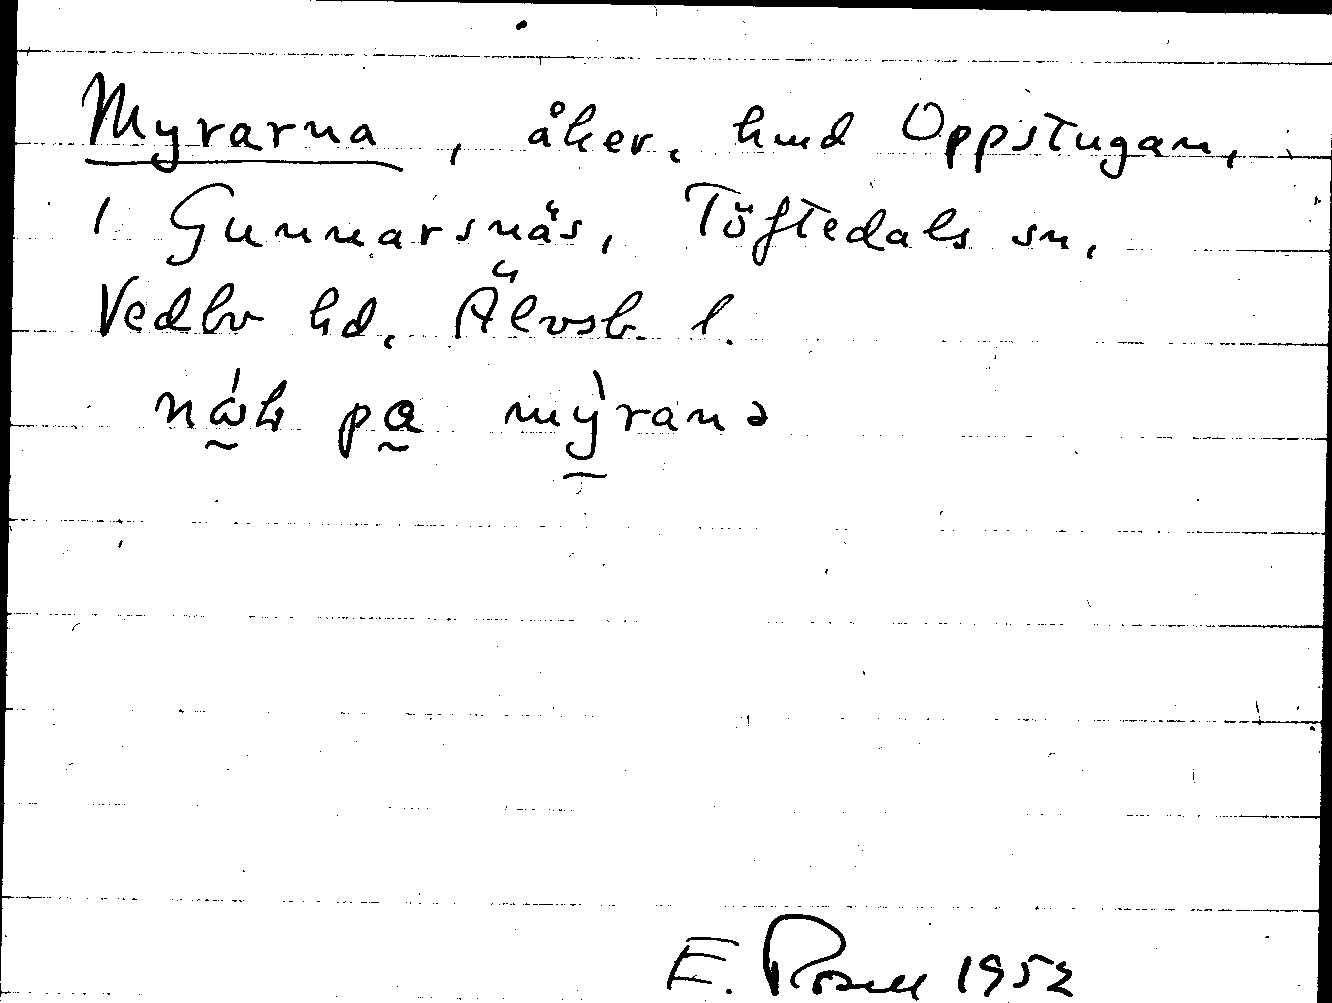 Myrarna, åker, hmd Oppstugan,
1 Gunnarsnäs, Töftedals sn,
Vedbo hd, Älvsb. l.
pa mỳranə
E. Rosell 1952